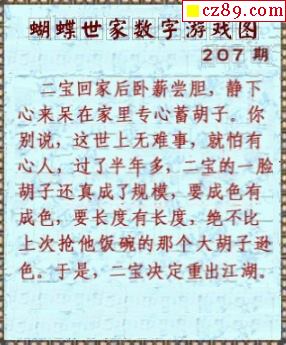 cz89.com
蝴蝶世家数字游戏图
207 期
二宝回家后卧薪尝胆，静下
心来呆在家里专心蓄胡子。你
别说，这世上无难事，就怕有
心人，过了半年多，二宝的一脸
胡子还真成了规模，要成色有
成色，要长度有长度，绝不比
上次抢他饭碗的那个大胡子逊
色。于是，二宝决定重出江湖。